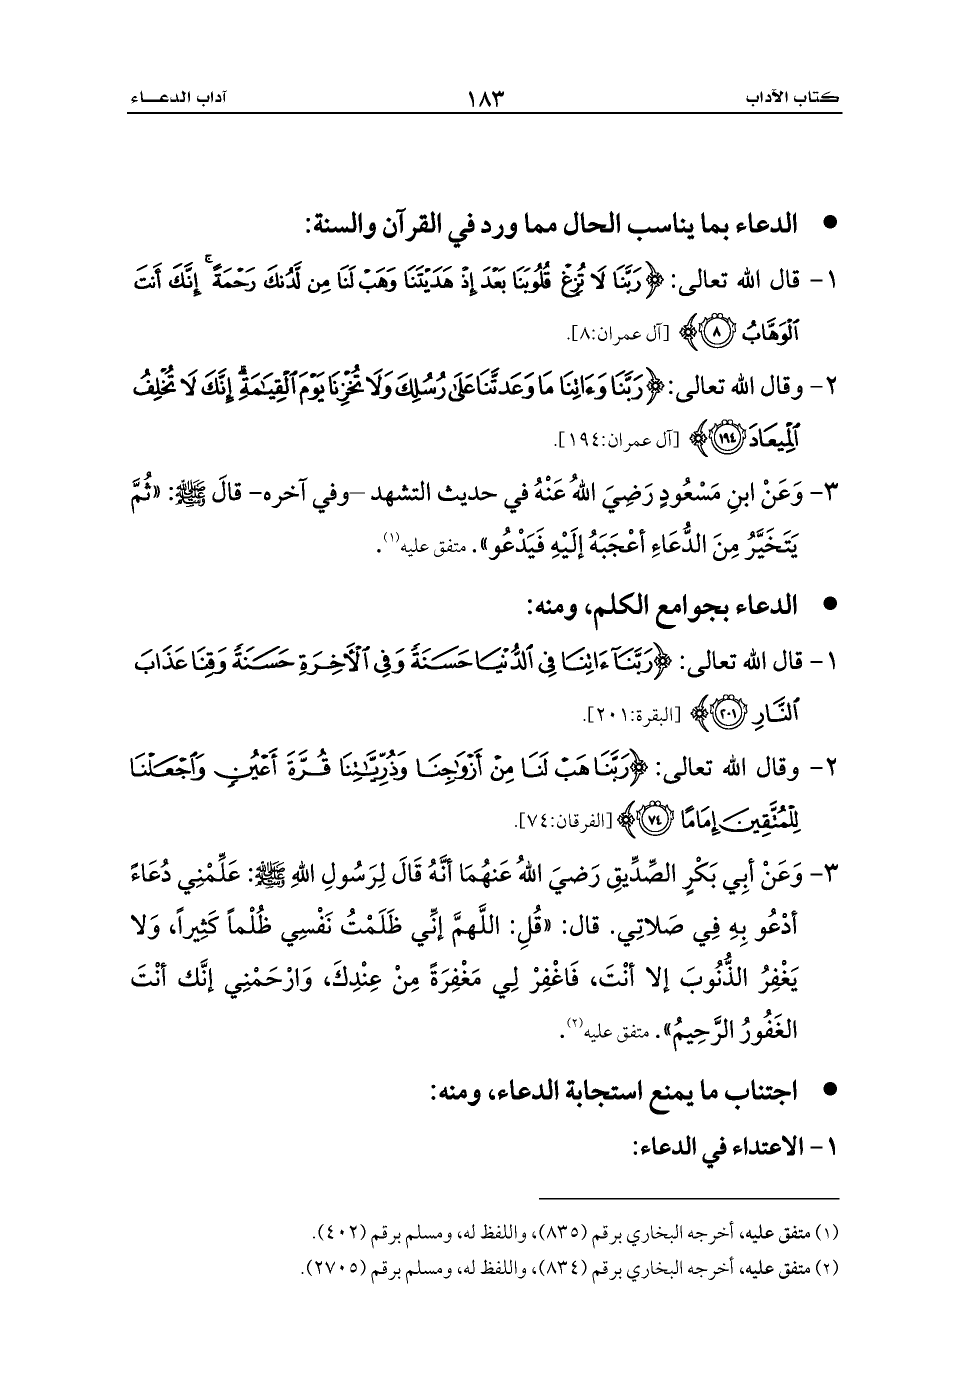 كتاب الآداب ١٨٣ آداب الدعـــاء
● الدعاء بما يناسب الحال مما ورد في القرآن والسنة:
١- قال الله تعالى: ﴿رَبَّنَا لَا تُزِغْ قُلُوبَنَا بَعْدَ إِذْ هَدَيْتَنَا وَهَبْ لَنَا مِن لَّدُنكَ رَحْمَةً ۚ إِنَّكَ أَنتَ
ٱلْوَهَّابُ ٨﴾ [آل عمران:٨].
٢- وقال الله تعالى: ﴿رَبَّنَا وَءَاتِنَا مَا وَعَدتَّنَا عَلَىٰ رُسُلِكَ وَلَا تُخْزِنَا يَوْمَ ٱلْقِيَـٰمَةِ ۗ إِنَّكَ لَا تُخْلِفُ
ٱلْمِيعَادَ ١٩٤﴾ [آل عمران:١٩٤].
٣- وَعَنْ ابنِ مَسْعُودٍ رَضِيَ اللهُ عَنْهُ في حديث التشهد –وفي آخره- قالَ ﷺ: «ثُمَّ
يَتَخَيَّرُ مِنَ الدُّعَاءِ أعْجَبَهُ إلَيْهِ فَيَدْعُو». متفق عليه(١).
● الدعاء بجوامع الكلم، ومنه:
١- قال الله تعالى: ﴿رَبَّنَآ ءَاتِنَا فِى ٱلدُّنْيَا حَسَنَةً وَفِى ٱلْأَخِرَةِ حَسَنَةً وَقِنَا عَذَابَ
ٱلنَّارِ ٢٠١﴾ [البقرة:٢٠١].
٢- وقال الله تعالى: ﴿رَبَّنَا هَبْ لَنَا مِنْ أَزْوَٰجِنَا وَذُرِّيَّـٰتِنَا قُرَّةَ أَعْيُنٍ وَٱجْعَلْنَا
لِلْمُتَّقِينَ إِمَامًا ٧٤﴾ [الفرقان:٧٤].
٣- وَعَنْ أبِي بَكْرٍ الصِّدِّيقِ رَضيَ اللهُ عَنهُمَا أنَّهُ قَالَ لِرَسُولِ اللهِ ﷺ: عَلِّمْنِي دُعَاءً
أدْعُو بِهِ فِي صَلاتِي. قال: «قُلِ: اللَّهمَّ إنِّي ظَلَمْتُ نَفْسِي ظُلْماً كَثِيراً، وَلا
يَغْفِرُ الذُّنُوبَ إلا أنْتَ، فَاغْفِرْ لِي مَغْفِرَةً مِنْ عِنْدِكَ، وَارْحَمْنِي إنَّك أنْتَ
الغَفُورُ الرَّحِيمُ». متفق عليه(٢).
● اجتناب ما يمنع استجابة الدعاء، ومنه:
١- الاعتداء في الدعاء:
(١) متفق عليه، أخرجه البخاري برقم (٨٣٥)، واللفظ له، ومسلم برقم (٤٠٢).
(٢) متفق عليه، أخرجه البخاري برقم (٨٣٤)، واللفظ له، ومسلم برقم (٢٧٠٥).